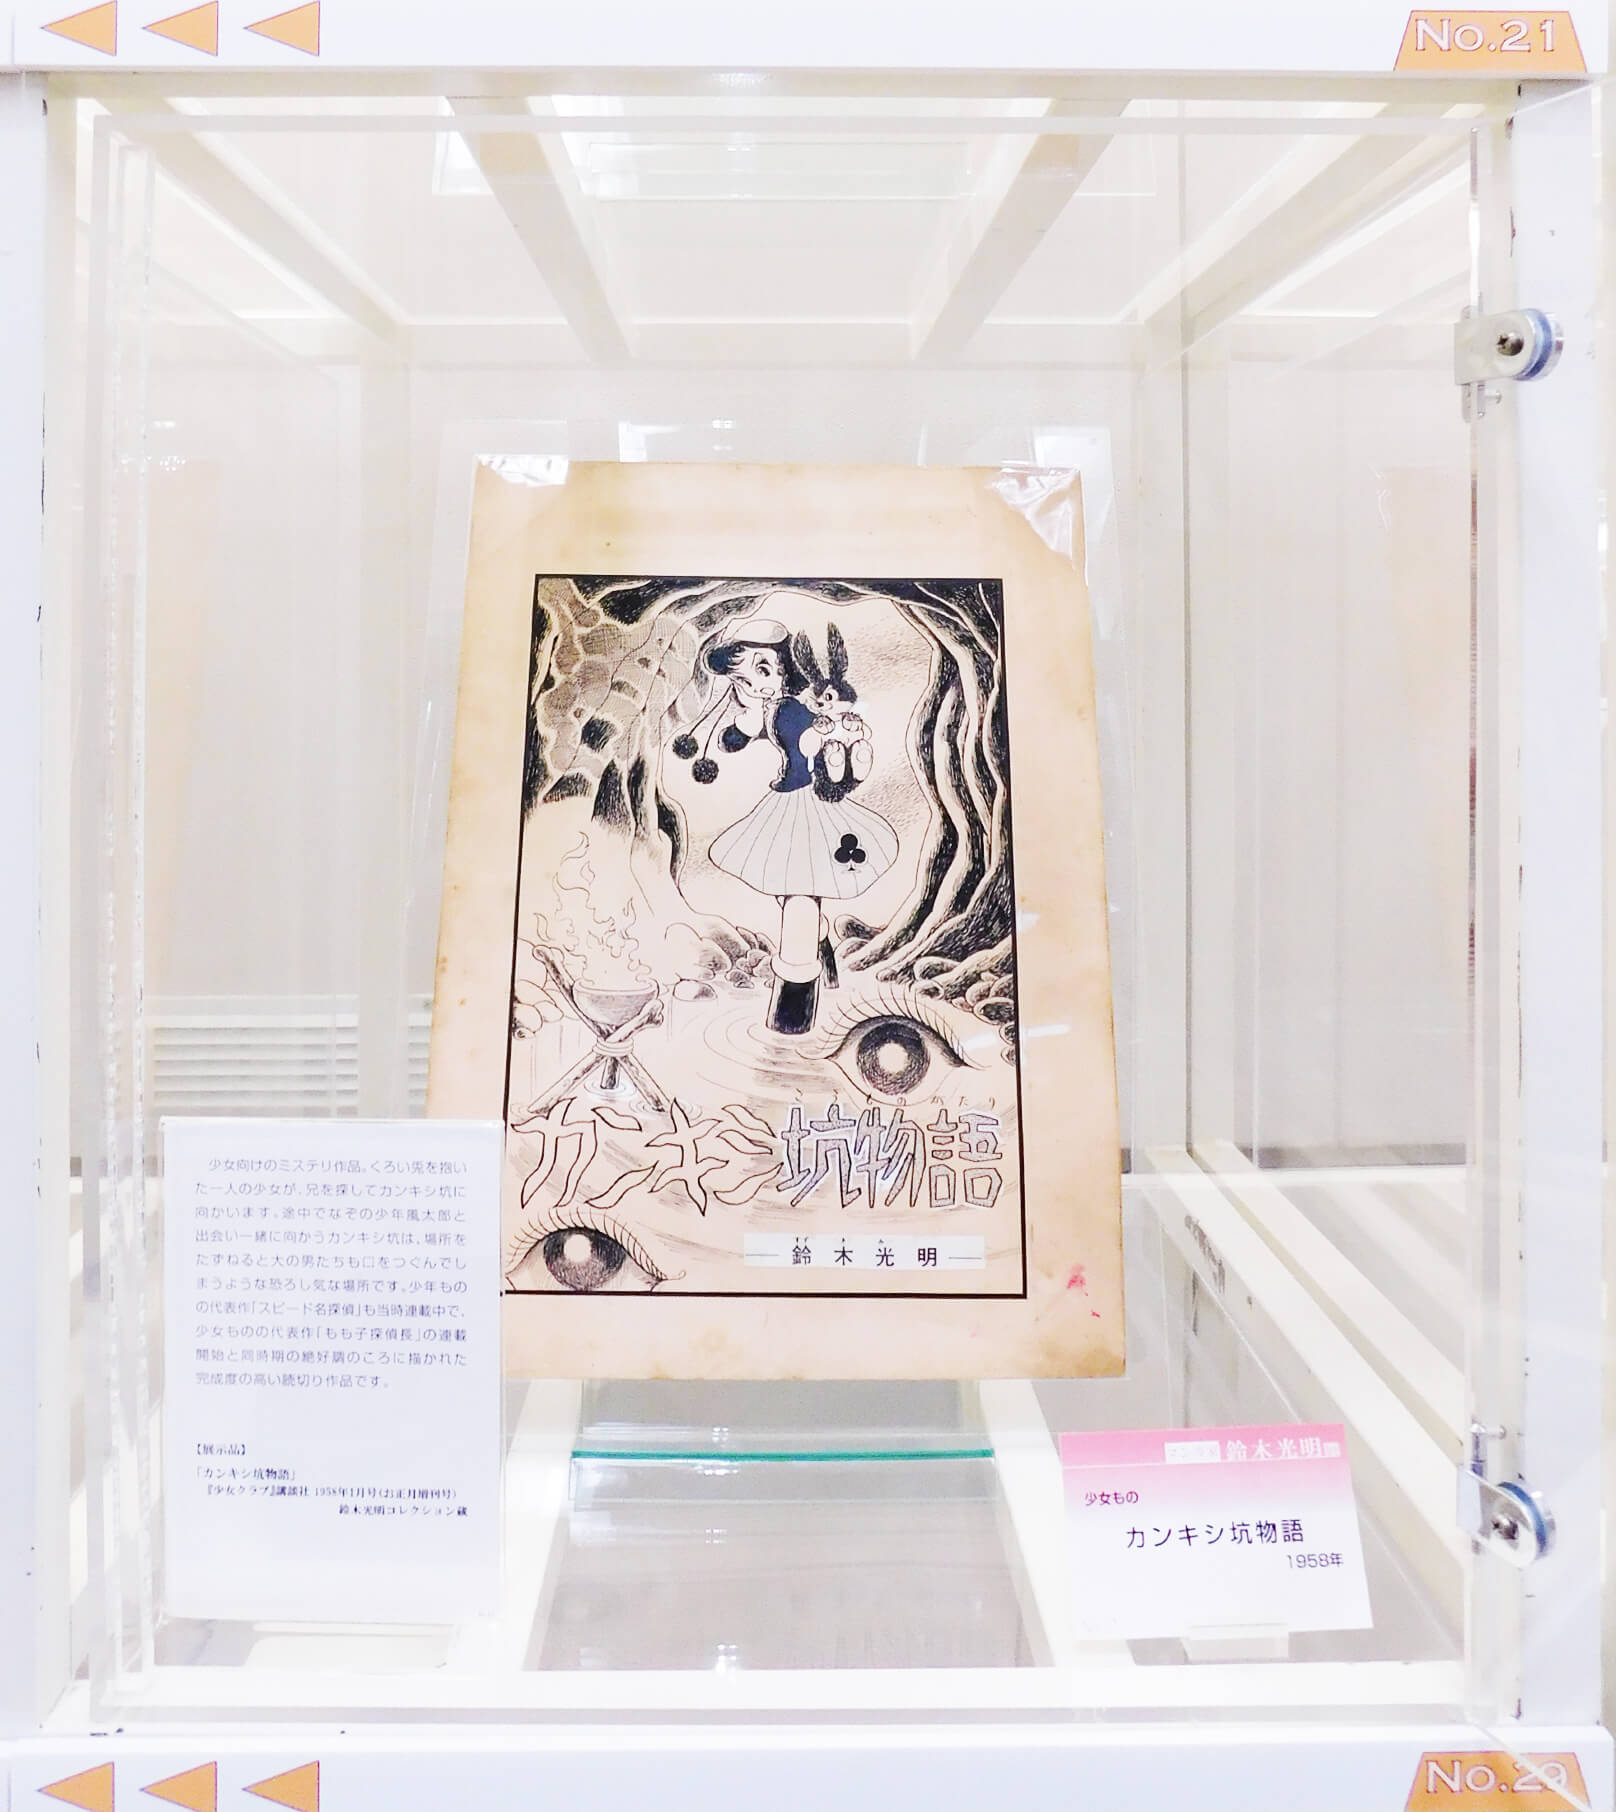 No.21
こうものがたり
カンキシ坑物語
すずきみ
鈴木光明
少女向けのミステリ作品。くろい兎を抱い
た一人の少女が、兄を探してカンキシ坑に
向かいます。途中でなぞの少年風太郎と
出会い一緒に向かうカンキシ坑は、場所を
たずねると大の男たちも口をつぐんでし
まうような恐ろし気な場所です。少年もの
の代表作「スピード名探偵」も当時連載中で、
少女ものの代表作「もも子探偵長」の連載
開始と同時期の絶好調のころに描かれた
完成度の高い読切り作品です。
【展示品】
「カンキシ坑物語」
『少女クラブ』講談社 1958年1月号(お正月増刊号)
鈴木光明コレクション蔵
鈴木光明
少女もの
カンキシ坑物語
1958年
No.29